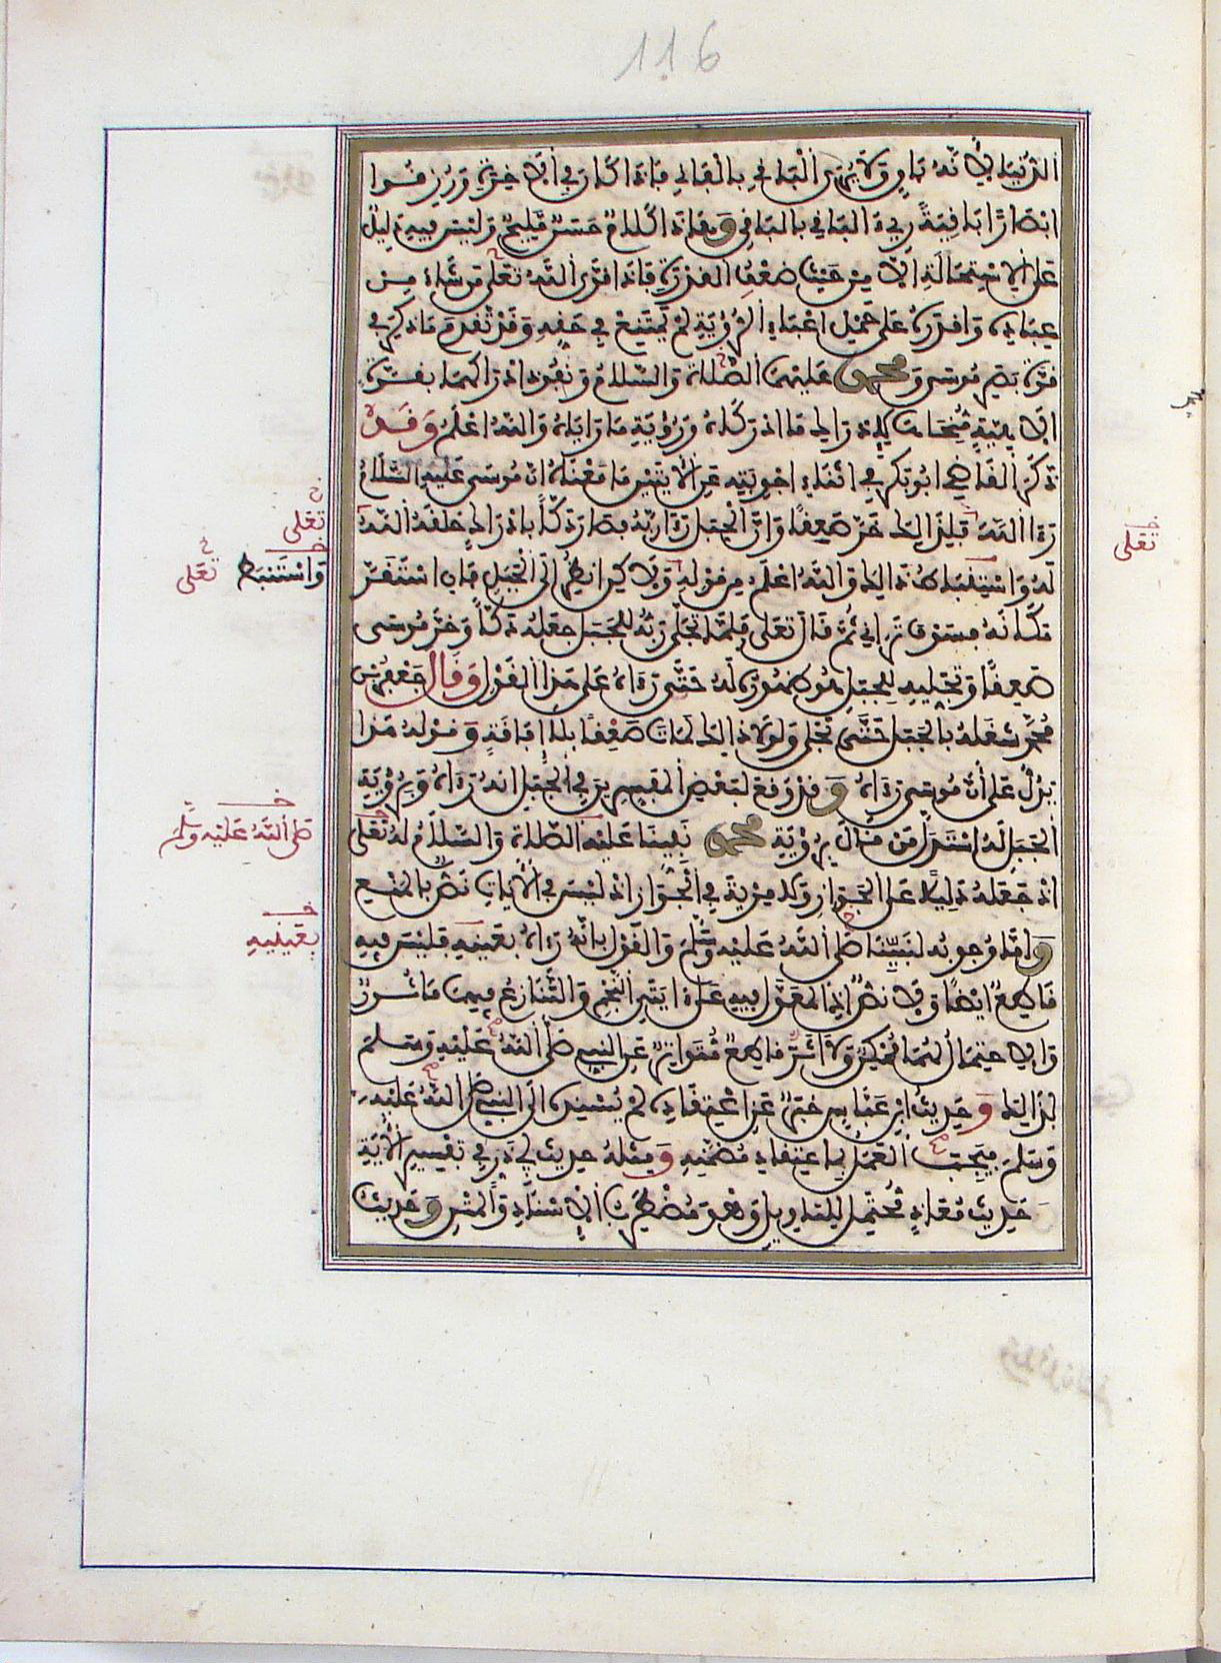 116
الدنيا لانه باق ولا يرى الباقي بالفاني فاذا كان في الاخرة ورزقوا
ابصارا باقية رءي الباقي بالباقي وهاذا كلام حسن مليح وليس فيه دليل
على الاستحالة الا من حيث ضعف القدرة فاذا قوى الله تعلى من شاء من
عباده واقدره على حمل اعباء الرؤية لم تمتنع في حقه وقد تقدم ما ذكر في
قوة بصر موسى ومحمد عليهما الصلاة والسلام ونفوذ ادراكهما بقوة
الاهية منحاها لادراك ما ادركاه ورؤية ما رأياه والله اعلم وقد
ذكر القاضي ابو بكر في اثناء اجوبته عن الايتين ما معناه ان موسى عليه السلام
رءا الله فلذالك خر صعقا وان الجبل رءا ربه فصار دكا بادراك خلقه الله
له واستنبط هذالك والله اعلم من قوله ولاكن انظر الى الجبل فان استقر
مكانه فسوف تراني ثم قال تعلى فلما تجلى ربه للجبل جعله دكا وخر موسى
صعقا وتجليه للجبل هو ظهوره له حتى رءاه على هذا القول وقال جعفر بن
محمد شغله بالجبل حتى تجلى ولولا ذالك لمات صعقا بلا افاقة وقوله هذا
يدل على ان موسى رءاه وقد وقع لبعض المفسرين في الجبل انه رءاه وبرؤية
الجبل له استدل من قال برؤية محمد نبينا عليه الصلاة والسلام له تعلى
اذ جعله دليلا على الجواز ولا مرية في الجواز اذ ليس في الايات نص بالمنع
واما وجوبه لنبينا صلى الله عليه وسلم والقول بانه رءاه بعينه فليس فيه
قاطع ايضا ولا نص اذ المعول فيه على ءايتي النجم والتنازع فيهما ماثور
والاحتمال لهما ممكن ولا اثر قاطع متواتر عن النبي صلى الله عليه وسلم
بذالك وحديث ابن عباس خبر عن اعتقاده لم يسنده الى النبي صلى الله عليه
وسلم فيجب العمل باعتقاد مضمنه ومثله حديث ابي ذر في تفسير الاية
حديث معاذ محتمل للتاويل وهو مضطرب الاسناد والمتن وحديث
تعلى
واستنبط تعلى
تعلى
صلى الله عليه وسلم
بعينيه